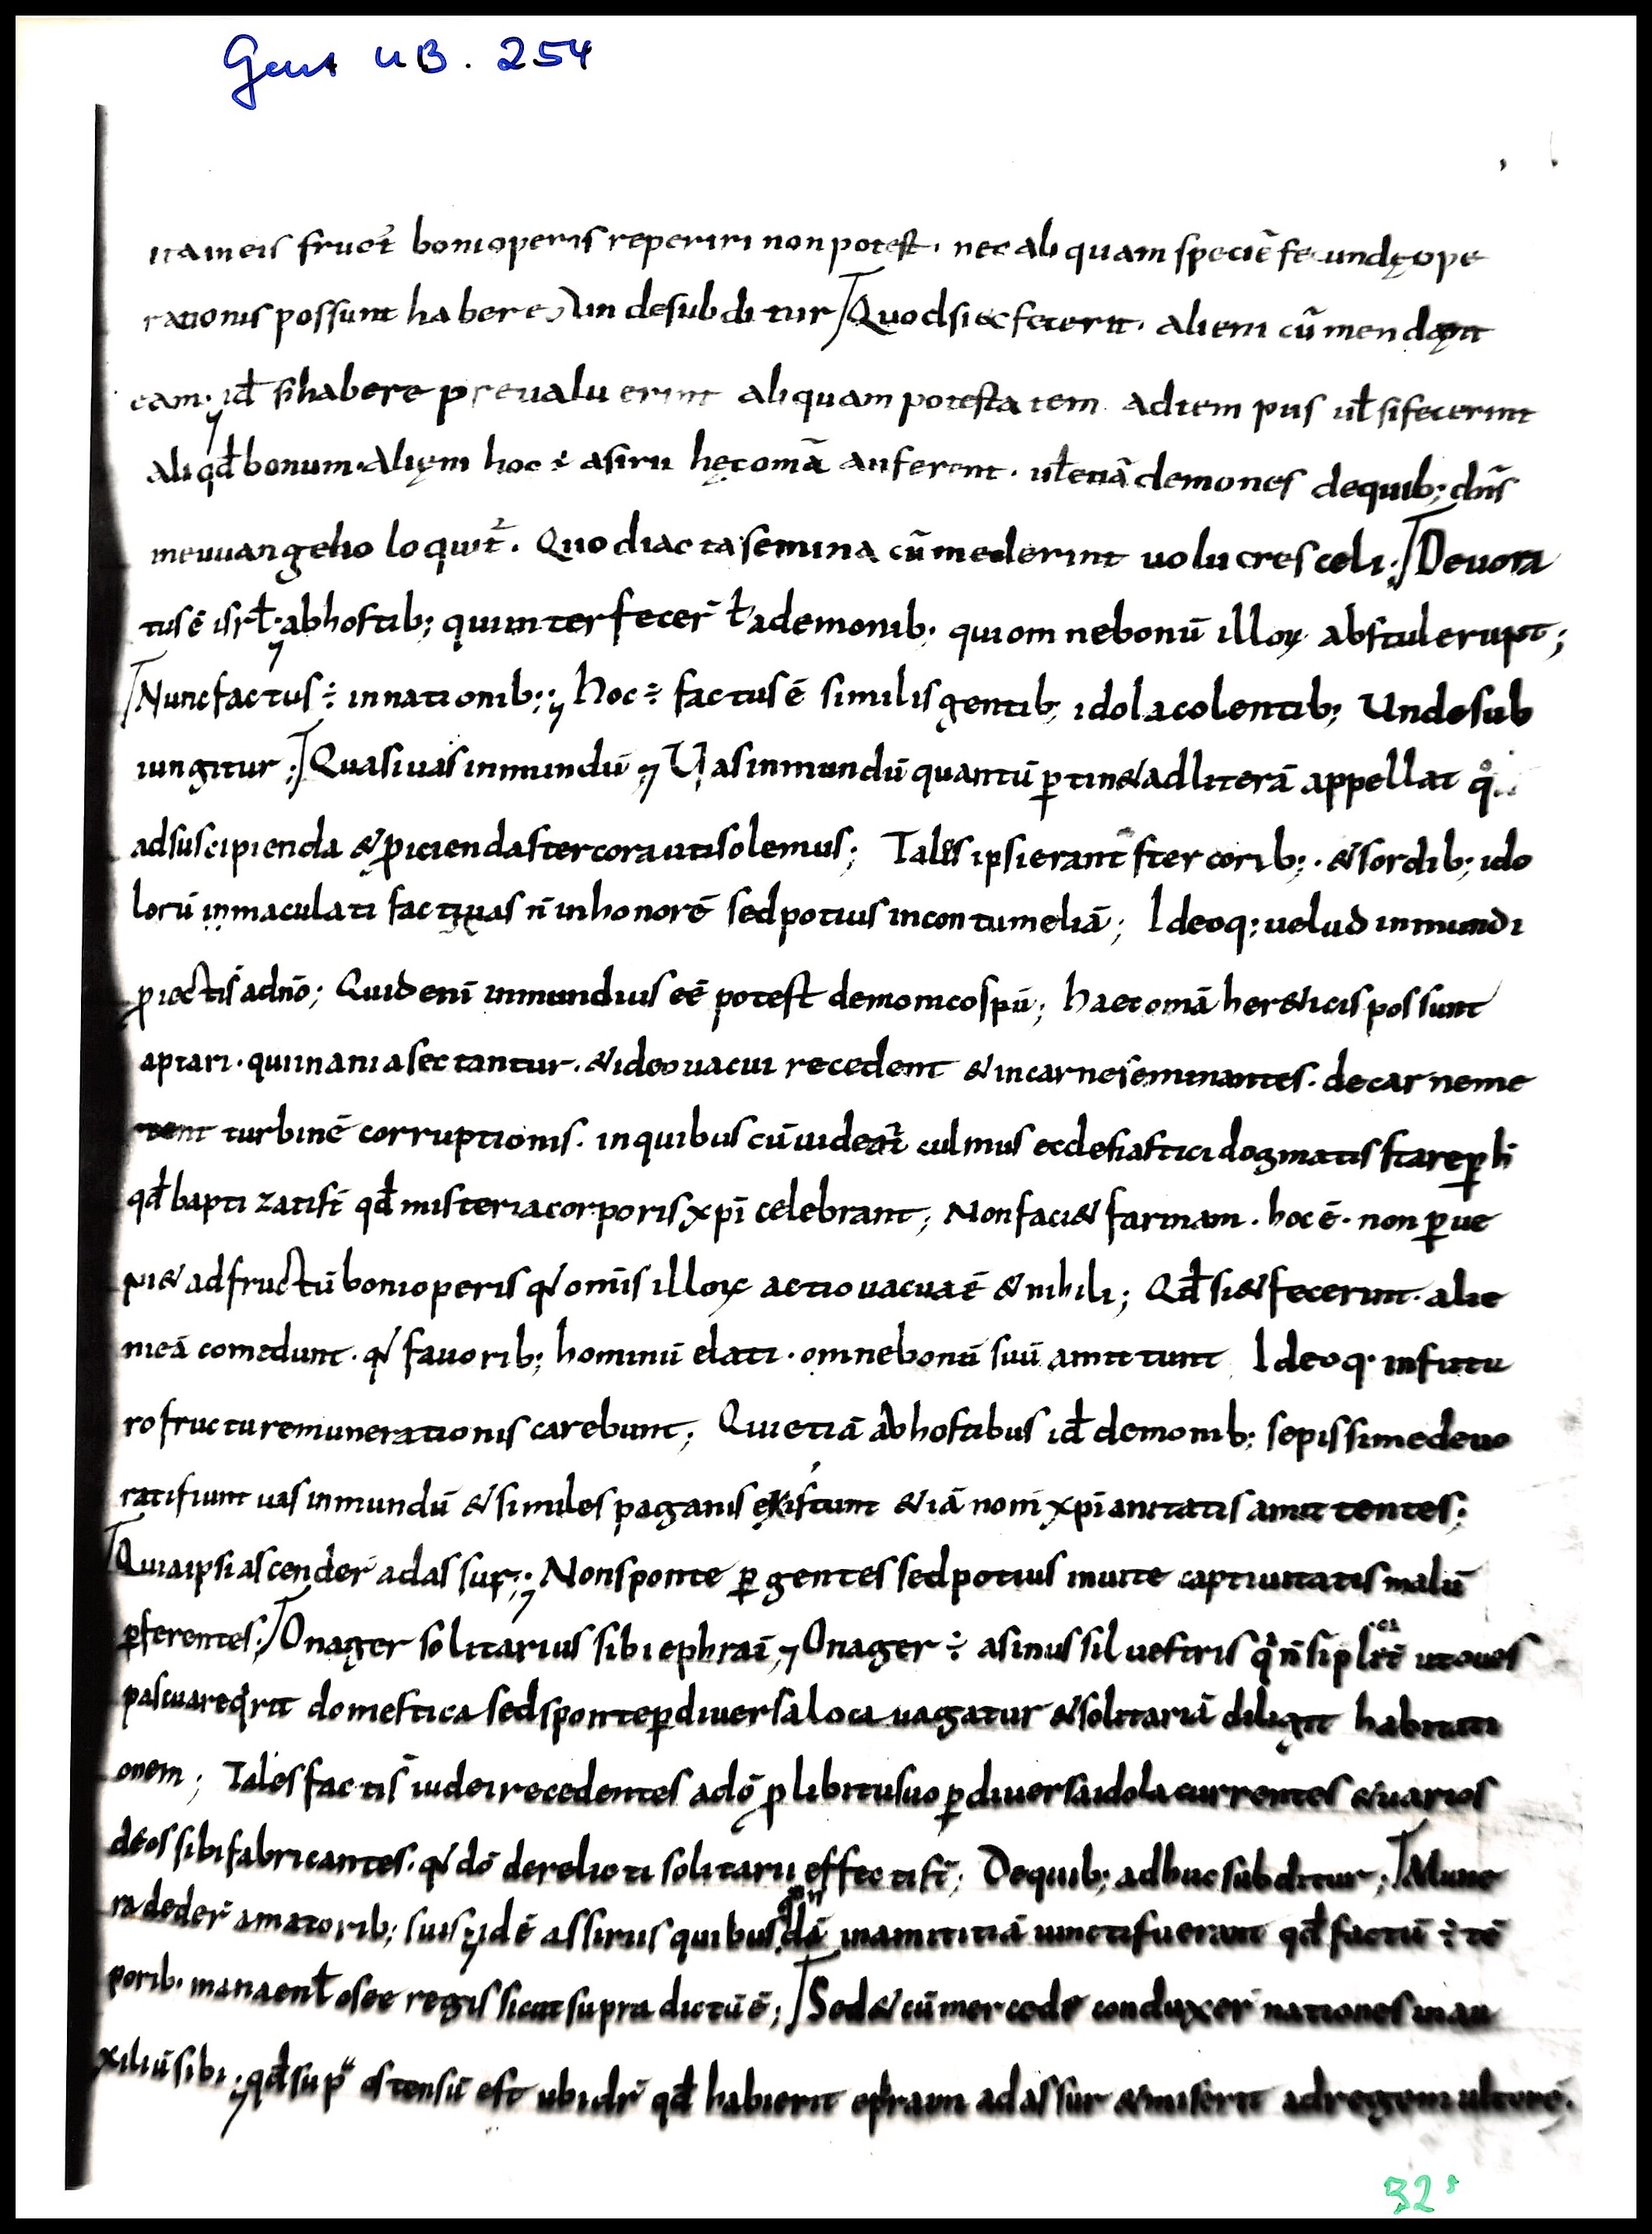 Gent UB. 254
ita in eis fruct̄ boni operis reperiri non potest · nec aliquam speciē fecundę ope
rationis possunt habere; Un de subditur Quod si et fecerit · alieni cū mendent
eam; id ē si habere preualuerint aliquam potestatem ad tempus uł si fecerint
aliqđ bonum · alieni hoc ÷ asirii hęc omā auferent · uł etiā demones de quib; dñs
in euuangelio loquit̄ · Quod iacta semina cū mederint uolucres celi; Deuora
tus ē isrł; ab hostib; qui interfecer̄ ł a demonib; qui omne bonū illoꝝ abstulerunt;
Nunc factus ÷ in nationib; hoc ÷ factus ē similis gentib; idola colentib; Unde sub
iungitur; Quasi uas inmundū Uas inmundū quantū ꝑtin& ad literā appellat
ad suscipienda & ꝓicienda stercora uti solemus; Tales ipsi erant stercorib; & sordib; ido
lorū inmaculati facti uas ñ in honorē sed potius in contumeliā; Ideoq; uelud inmundi
ꝓiecti s̄ a dño; Quid enī inmundius eē potest demonico spū; haec omā her&icis possunt
aptari · qui inania sectantur · & ideo uacui recedent & in carne seminantes · de carne me
tent turbinē corruptionis · in quibus cū uideat̄ culmus ecclesiastici dogmatis stare ꝑ h̄
qđ baptizati s̄t qđ misteria corporis xp̄i celebrant; Non faci& farinam · hoc ē · non ꝑue
ni& ad fructū boni operis q& om̄is illoꝝ actio uacua ē & nihili; Qđ si & fecerint · alie
ni eā comedunt · q& fauorib; hominū elati · omne bonū suū amittunt Ideoq· in futu
ro fructu remunerationis carebunt; Qui etiā ab hostibus iđ demonib; sepissime deuo
rati fiunt uas inmundū & similes paganis existunt & iā nom̄ xp̄ianitatis amittentes;
Quia ipsi ascender̄ ad assur; Non sponte ꝑgentes sed potius inuite captiuitatis malū
ꝑferentes; Onager solitarius sibi ephraī; Onager ÷ asinus siluestris ut oues
pascua reqrit domestica sed sponte ꝑ diuersa loca uagatur & solitariā diligit habitati
onem; Tales facti s̄ iudei recedentes a dō ꝓ libitu suo ꝑ diuersa idola currentes & uarios
deos sibi fabricantes · q& dō derelicti solitarii effecti s̄t; De quib; adhuc subditur; Mune
ra deder̄ amatorib; suis; id ē assiriis quibus dā in amicitiā iuncti fuerant qđ factū ÷ tē
porib· manaen ł osee regis sicut supra dictū ē; Sed & cū mercede conduxer̄ nationes in au
xiliū sibi; qđ sup̄ ostensū est ubi dr̄ qđ habierit ephraim ad assur & miserit ad regem ultorē.
32r